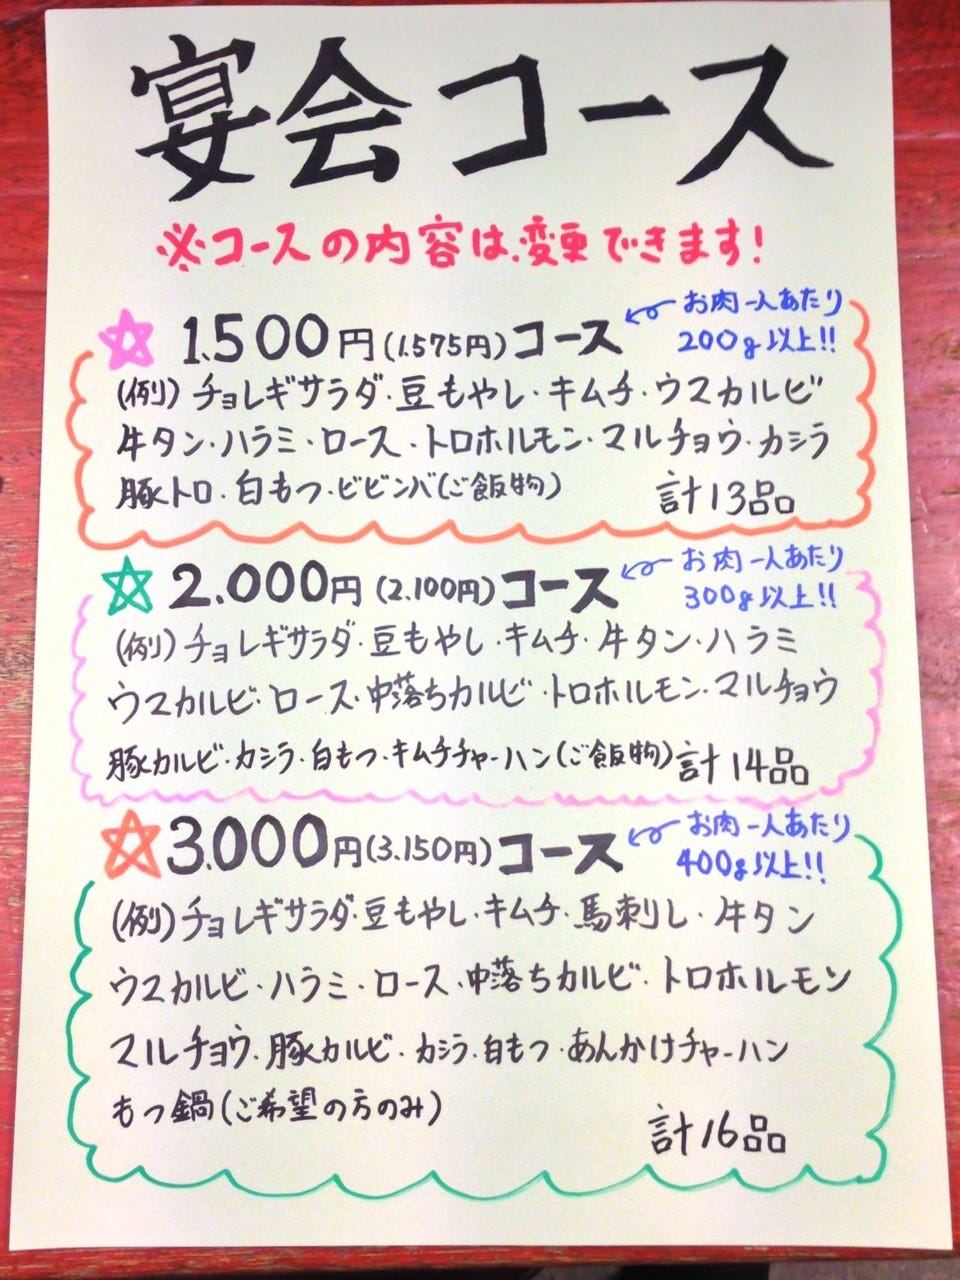 宴会コース
※コースの内容は変更できます!
☆ 1.500円(1.575円)コース
お肉一人あたり
200g以上!!
(例)チョレギサラダ・豆もやし・キムチ・ウスカルビ
牛タン・ハラミ・ロース・トロホルモン・マルチョウ・カシラ
豚トロ・白もつ・ビビンバ(ご飯物) 計13品
☆ 2.000円(2.100円)コース
お肉一人あたり
300g以上!!
(例)チョレギサラダ・豆もやし・キムチ・牛タン・ハラミ
ウスカルビ・ロース・中落ちカルビ・トロホルモン・マルチョウ
豚カルビ・カシラ・白もつ・キムチチャーハン(ご飯物)計14品
☆3.000円(3.150円)コース
お肉一人あたり
400g以上!!
(例)チョレギサラダ・豆もやし・キムチ・馬刺し・牛タン
ウスカルビ・ハラミ・ロース・中落ちカルビ・トロホルモン
マルチョウ・豚カルビ・カシラ・白もつ・あんかけチャーハン
もつ鍋(ご希望の方のみ)
計16品